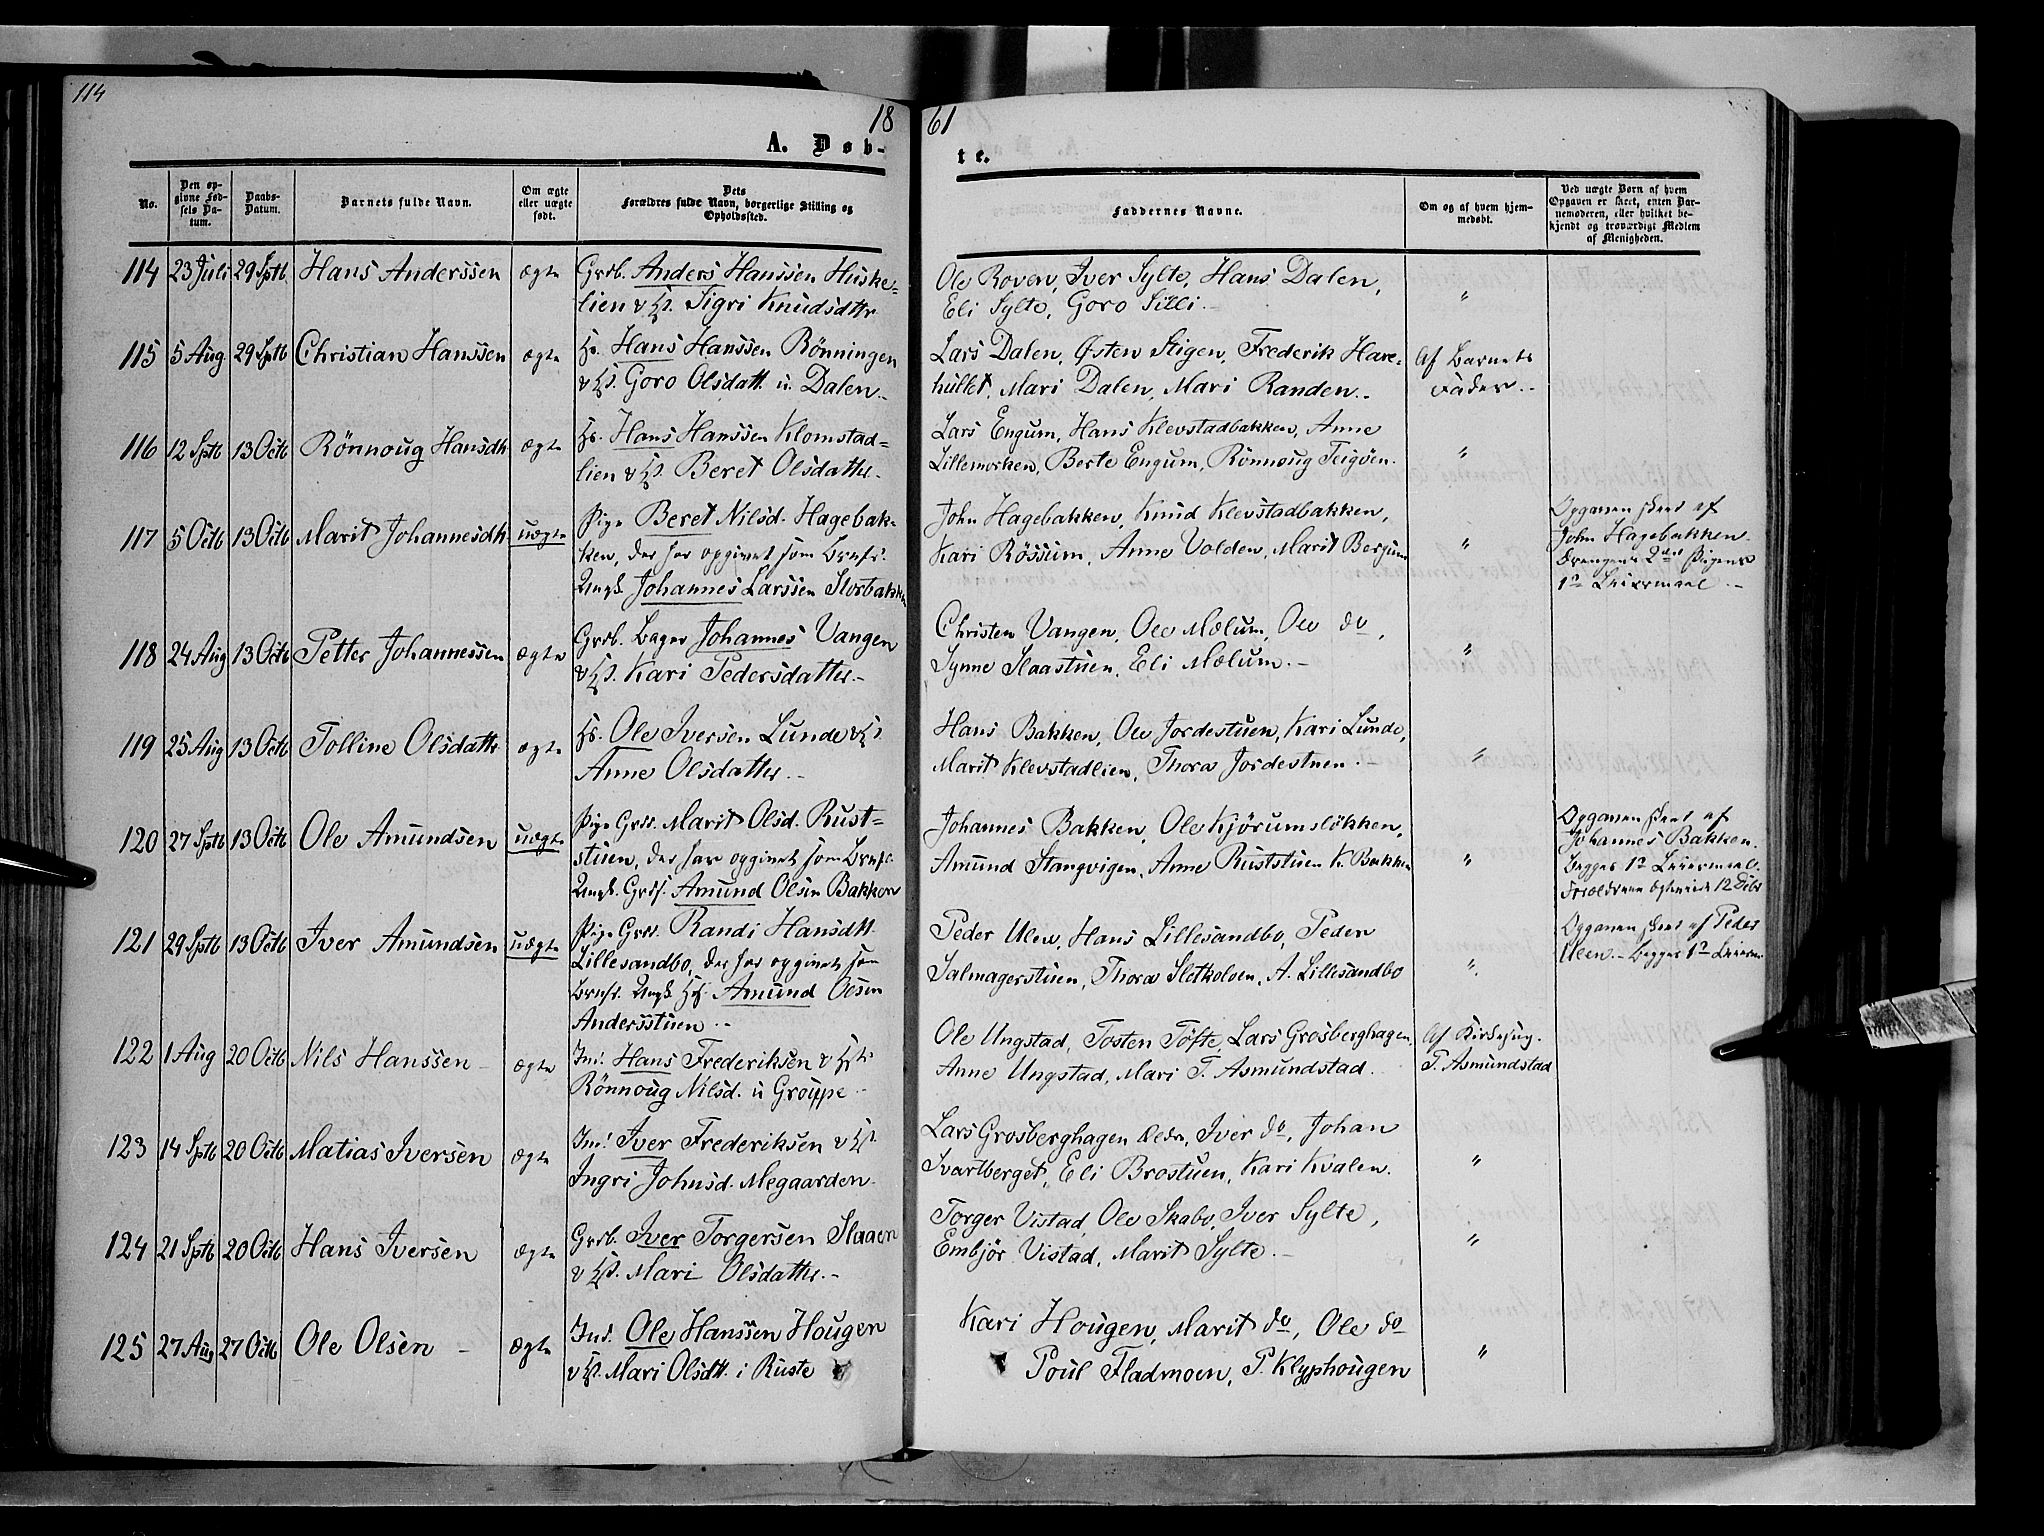 114
18 61
A. Døb-
te.
No.
Den op-
givne Fød-
sels Da-
tum.
Daabs-
Datum.
Barnets fulde Navn.
Om ægte
eller uægte
født.
Dets
Forældres fulde Navn, borgerlige Stilling og
Opholdssted.
Faddernes Navne.
Om og af hvem hjem-
medøbt.
Ved uægte Børn af hvem
Opgaven er skeet, enten Bar-
nemoderen, eller hvilket be-
kjendt og troværdigt Medlem
af Menigheden.
114 23 Juli 29 Sptb. Hans Anderssen ægte Grdb. Anders Hanssen Huske-
lien & Hst. Sigri Knudsdttr.
Ole Roven, Iver Sylte, Hans Dalen,
Eli Sylte, Goro Silli.
"
115 5 Aug 29 Sptb Christian Hanssen ægte Hs. Hans Hanssen Rönningen
& Hst. Goro Olsdatt. u. Dalen.
Lars Dalen, Østen Stigen, Frederik Hare-
hullet, Mari Dalen, Mari Randen.
Af Barnets
Fader.
116 12 Sptb 13 Octb Rönnoug Hansdtt ægte Hs. Hans Hanssen Klomstad-
lien & Hst. Beret Olsdatter.
Lars Engum, Hans Klevstadbakken, Anne
Lillemorken, Berte Engum, Rönnoug Teigöen.
"
117 5 Octb 13 Octb Marit Johannesdtt uægte Pige Beret Nilsd. Hagebak-
ken, der har opgivet som Brnfr.
Ungk. Johannes Larssen Storbakken
John Hagebakken, Knud Klevstadbakken,
Kari Rössum, Anne Volden, Marit Bergum
"
Opgaven skeet af
John Hagebakken.
Drengens 2det Pigens
1ste Leiermaal.
118 24 Aug 13 Octb Petter Johannessen ægte Grdb. Bager Johannes Vangen
& Hst. Kari Pedersdatter.
Christen Vangen, Ole Mælum, Ole do,
Synne Slaastuen, Eli Mælum.
"
119 25 Aug 13 Octb Tolline Olsdattr ægte Hs. Ole Iversen Lunde & Hst
Anne Olsdatter.
Hans Bakken, Ole Jordestuen, Kari Lunde,
Marit Klevstadlien, Thora Jordestuen.
"
120 27 Sptb 13 Octb Ole Amundsen uægte Pige Grdd. Marit Olsd. Rust-
stuen, der har opgivet som Brnfr.
Ungk. Grds. Amund Olsen Bakken
Johannes Bakken, Ole Kjörumslökken,
Amund Stangvigen, Anne Ruststuen K. Bakken
"
Opgaven skeet af
Johannes Bakken.
Begges 1ste Leiermaal.
Forældrene ægteviede 12 Debr
121 29 Sptb 13 Octb Iver Amundsen uægte Pige Grdd. Randi Hansdtt
Lillesandbo, der har opgivet som
Brnfr. Ungk. Hs. Amund Olsen
Andersstuen.
Peder Ulen, Hans Lillesandbo, Peder
Salmagerstuen, Thora Sletholen, A. Lillesandbo
"
Opgaven skeet af Peder
Uleen. Begges 1ste Leierm.
122 1 Aug 20 Octb Nils Hanssen ægte Ind. Hans Frederiksen & Hst.
Rönnoug Nilsd. u Gruppe.
Ole Ungstad, Tosten Tofte, Lars Grosberghagen,
Anne Ungstad, Mari T. Asmundstad.
Af Kirkesng.
T. Asmundstad
123 14 Sptb 20 Octb Matias Iversen ægte Ind. Iver Frederiksen & Hst.
Ingri Johnsd. Megaarden.
Lars Grosberghagen Ældr, Iver do, Johan
Svartberget, Eli Brostuen, Kari Kvalen.
"
124 21 Sptb 20 Octb Hans Iversen ægte Grdb. Iver Torgersen Slaaen
& Hst. Mari Olsdatter.
Torger Vistad, Ole Skabo, Iver Sylte,
Embjör Vistad, Marit Sylte.
"
125 27 Aug 27 Octb Ole Olsen ægte Ind. Ole Hanssen Hougen
& Hst. Mari Olsdtt. i Ruste
Kari Hougen, Marit do, Ole do
Poul Fladmoen, P. Klyphougen
"